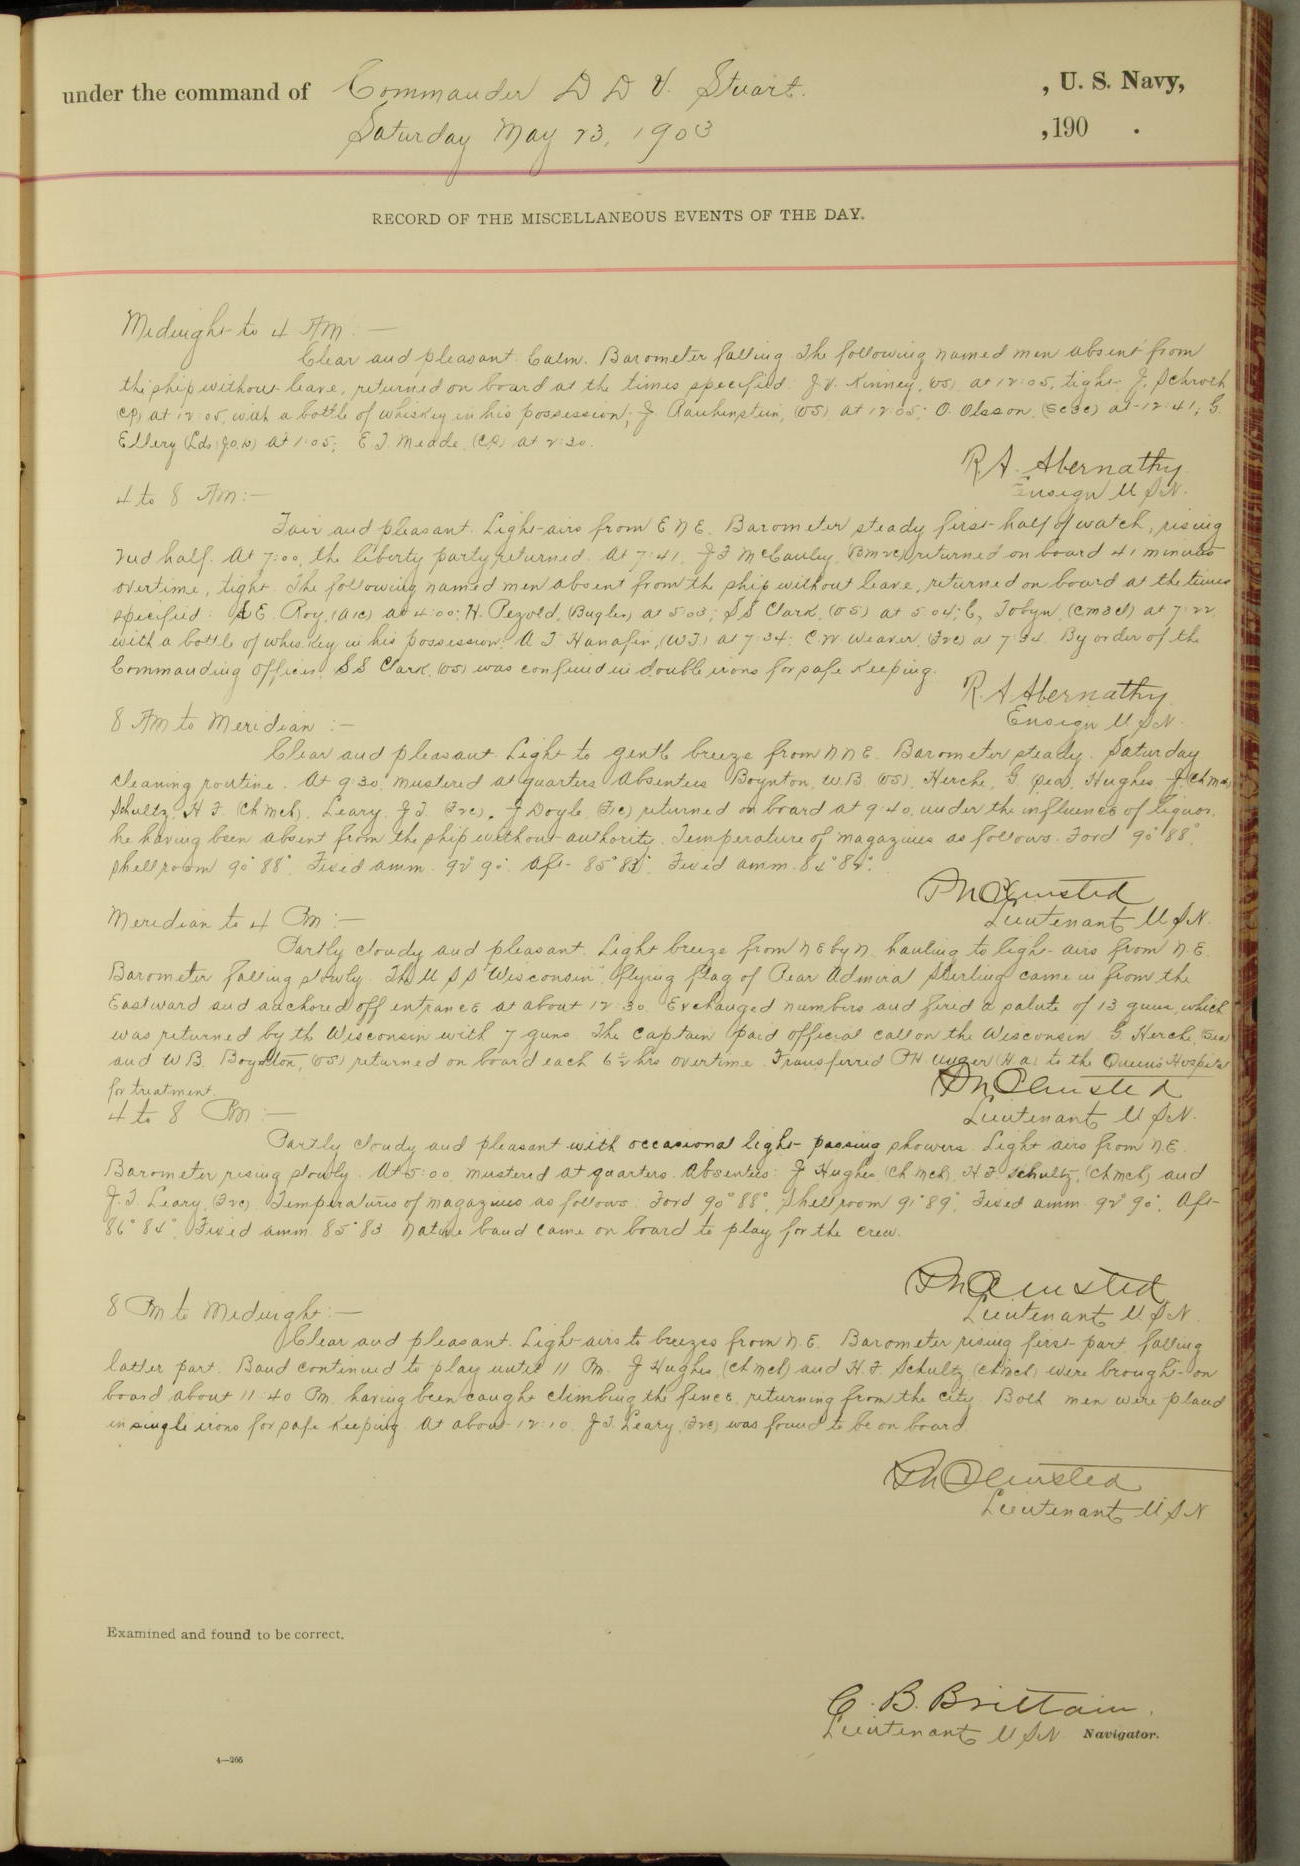 under the command of Commander D D V. Stuart. , U. S. Navy,
Saturday May 23, 1903 , 190 .
RECORD OF THE MISCELLANEOUS EVENTS OF THE DAY.
Midnight to 4 AM :—
Clear and pleasant. Calm. Barometer falling. The following named men absent from
the ship without leave, returned on board at the times specified: J.V. Kinney, (OS) at 12:05, tight. J. Schroth
(CP) at 12:05, with a bottle of whiskey in his possession; J (OS) at 12:05; O. Olsson, (SC3C) at 12:41; G.
Ellery (Lds) at 1:05; E.J. Meade, (CP) at 2:30.
R. A. Abernathy
Ensign U S N.
4 to 8 AM :—
Fair and pleasant. Light airs from E N E. Barometer steady first half of watch, rising
2nd half. At 7:00, the liberty party returned. At 7:41, J F McCauley (BM2C) returned on board 41 minutes
overtime, tight. The following named men absent from the ship without leave, returned on board at the times
specified: E. Roy, (A1C) at 4:00; H. Pezold, (Bugler) at 5:03; S S Clark, (OS) at 5:04; C. Tobyn, (CM3Cl) at 7:22
with a bottle of whiskey in his possession; A. T. Hanafin, (WT) at 7:34; C W Weaver, (F2C) at 7:34. By order of the
Commanding officer, S S Clark, (OS) was confined in double irons for safe keeping.
R. A Abernathy
Ensign U S N.
8 AM to Meridian :—
Clear and pleasant. Light to gentle breeze from N N E. Barometer steady. Saturday
cleaning routine. At 9:30, mustered at quarters. Absentees Boynton, W.B (OS), Herche, G (Sea), Hughes J (Ch Mch)
Schultz, H F (Ch Mch), Leary J T. (F2C). J Doyle (F1C) returned on board at 9:40, under the influence of liquor,
he having been absent from the ship without authority. Temperature of magazines as follows: Ford 90° 88°,
Shell room 90° 88°, Fixed amm. 92° 90°. Aft 85° 83°. Fixed amm. 84° 82°.
F N Olmsted
Lieutenant U S N.
Meridian to 4 PM :—
Partly cloudy and pleasant. Light breeze from N E by N. hauling to light airs from N. E.
Barometer falling slowly. The U S S "Wisconsin" flying flag of Rear Admiral Sterling came in from the
Eastward and anchored off entrance at about 12:30. Exchanged numbers and fired a salute of 13 guns, which
was returned by the Wisconsin with 7 guns. The captain paid official call on the Wisconsin. G. Herche, (Sea)
and W B. Boynton, (OS) returned on board each 6½ hrs overtime. Transferred P H Unger (H a) to the Queens Hospital
for treatment.
F N Olmsted
Lieutenant U S N.
4 to 8 PM :—
Partly cloudy and pleasant with occasional light passing showers. Light airs from N. E.
Barometer rising slowly. At 5:00, mustered at quarters. Absentees: J Hughes (Ch Mch), H. F. Schultz, (Ch Mch) and
J. T. Leary, (F2C). Temperatures of magazines as follows: Ford 90° 88°, Shell room 91° 89°, Fixed amm. 92° 90°, Aft
86° 84°, Fixed amm. 85° 83. Native band came on board to play for the crew.
F N Olmsted
Lieutenant U S N.
8 PM to Midnight :—
Clear and pleasant. Light airs to breezes from N. E. Barometer rising first part, falling
latter part. Band continued to play until 11 PM. J Hughes, (Ch Mch) and H. F. Schultz (Ch Mch) were brought on
board about 11:40 PM. having been caught climbing the fence, returning from the city. Both men were placed
in single irons for safe keeping. At about 12:10. J T. Leary, (F2C) was found to be on board.
F N Olmsted
Lieutenant U S N
Examined and found to be correct.
C. B. Brittain,
Lieutenant U S N. Navigator.
4—266